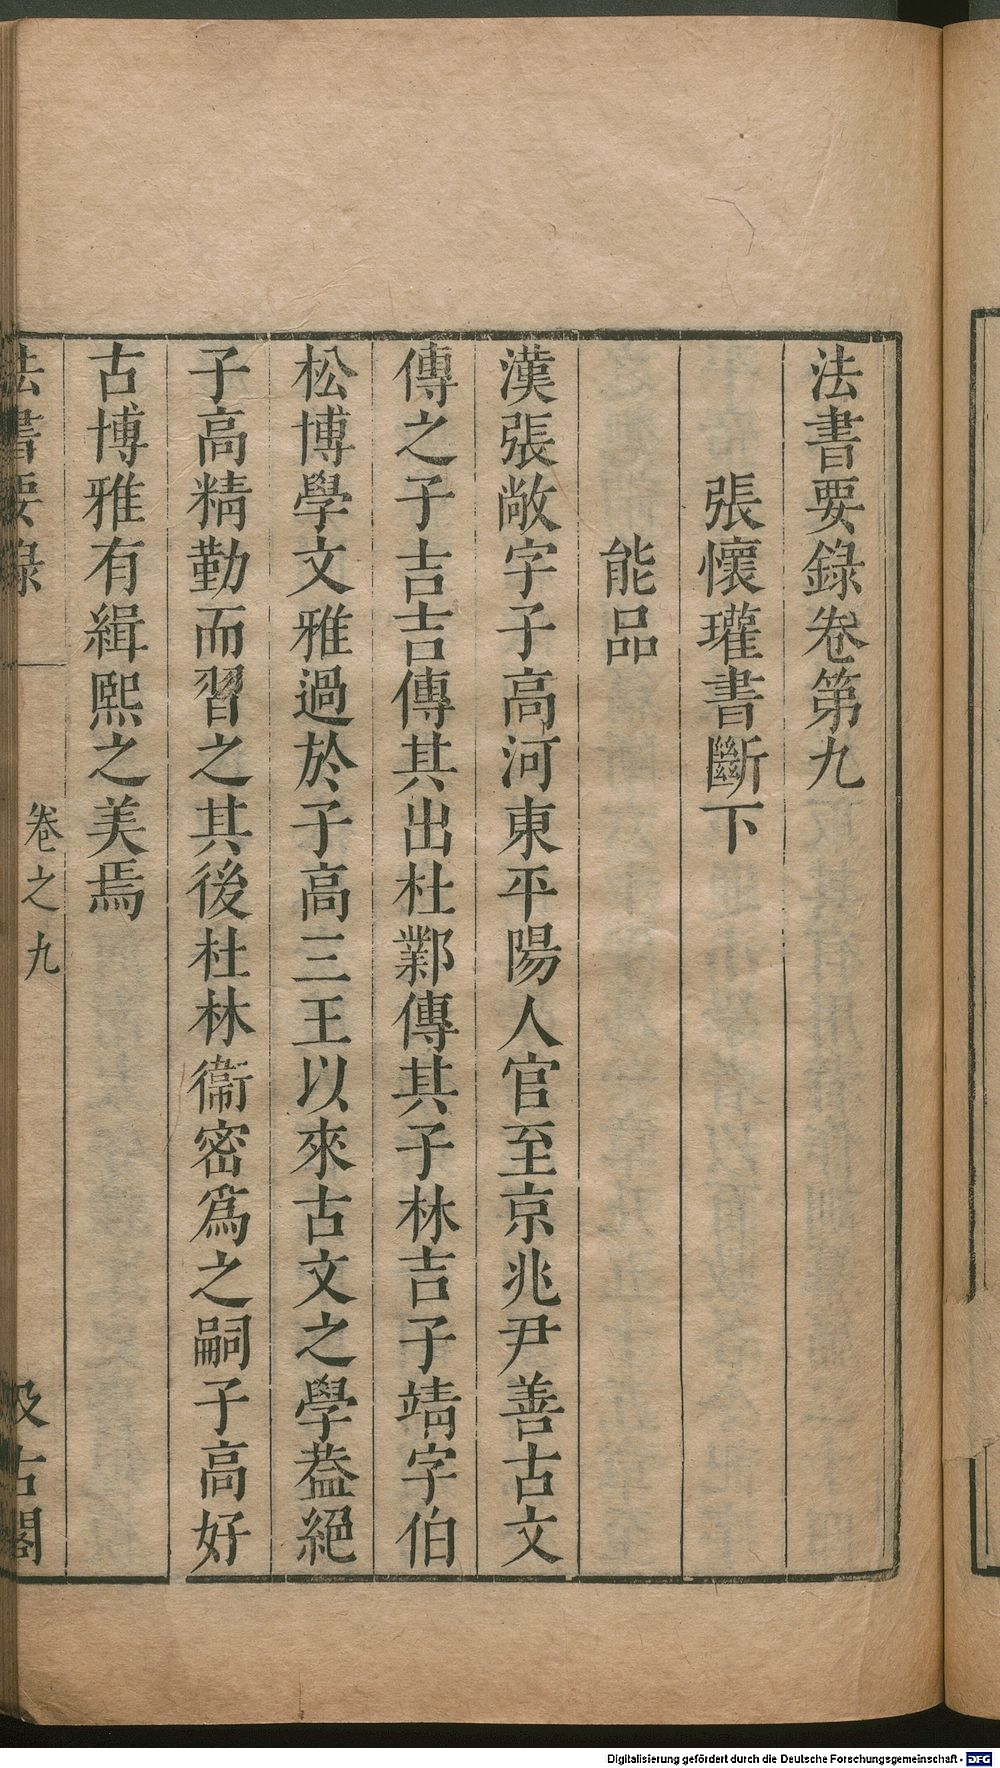 法書要錄卷第九
張懷瓘書斷下
能品
漢張敞字子高河東平陽人官至京兆尹善古文
傳之子吉吉傳其出杜鄴傳其子林吉子靖字伯
松博學文雅過於子高三王以來古文之學葢絕
子高精勤而習之其後杜林衞密爲之嗣子高好
古博雅有緝熙之美焉
法書要錄
卷之九
汲古閣
Digitalisierung gefördert durch die Deutsche Forschungsgemeinschaft - DFG